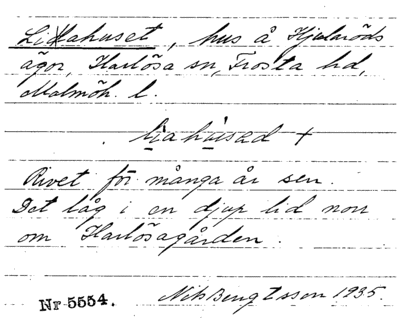 Lidahuset, hus å Hjularöds
ägor, Harlösa sn, Frosta hd,
Malmöh. l.
liahusad +
Rivet för många år sen.
Det låg i en djup lid norr
om Harlösagården.
Nr 5554. Nils Bengtsson 1935.